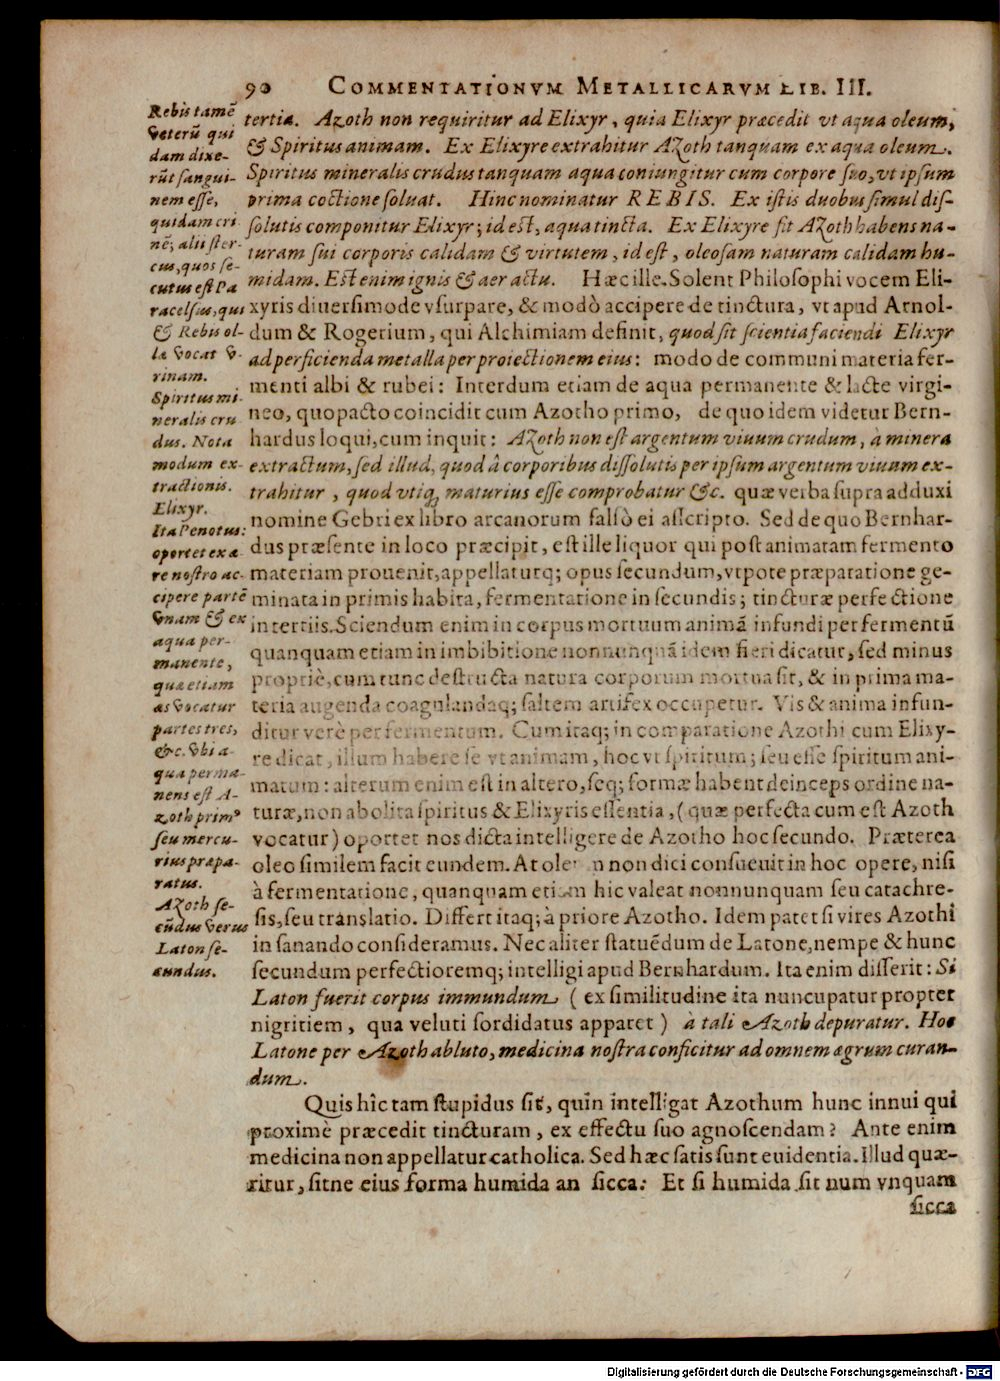 90 COMMENTATIONVM METALLICARVM LIB. III.
Rebis tamē
veterū qui
dam dixe-
rūt sangui-
nem esse,
quidam cri
nē; alii ster-
cus, quos se-
cutus est Pa
racelsus, qui
& Rebis ol-
la vocat v-
rinam.
Spiritus mi-
neralis cru
dus. Nota
modum ex-
tractionis.
Elixyr.
Ita Penotus:
oportet ex æ-
re nostro ac-
cipere partē
vnam & ex
aqua per-
manente,
quæ etiam
as vocatur
partes tres,
&c. vbi a-
qua perma-
nens est A-
zoth prim9
seu mercu-
rius præpa-
ratus.
AZoth se-
cūdus verus
Laton se-
cundus.
tertia. Azoth non requiritur ad Elixyr, quia Elixyr præcedit vt aqua oleum,
& Spiritus animam. Ex Elixyre extrahitur AZoth tanquam ex aqua oleum.
Spiritus mineralis crudus tanquam aqua coniungitur cum corpore suo, vt ipsum
prima coctione soluat. Hinc nominatur REBIS. Ex istis duobus simul dis-
solutis componitur Elixyr; id est, aqua tincta. Ex Elixyre fit AZoth habens na-
turam sui corporis calidam & virtutem, id est, oleosam naturam calidam hu-
midam. Est enim ignis & aer actu. Hæc ille. Solent Philosophi vocem Eli-
xyris diuersimode vsurpare, & modò accipere de tinctura, vt apud Arnol-
dum & Rogerium, qui Alchimiam definit, quod sit scientia faciendi Elixyr
ad perficienda metalla per proiectionem eius: modo de communi materia fer-
menti albi & rubei: Interdum etiam de aqua permanente & lacte virgi-
neo, quo pacto coincidit cum Azotho primo, de quo idem videtur Bern-
hardus loqui, cum inquit: AZoth non est argentum viuum crudum, à minera
extractum, sed illud, quod â corporibus dissolutis per ipsum argentum viuum ex-
trahitur, quod vtiq; maturius esse comprobatur &c. quæ verba supra adduxi
nomine Gebri ex libro arcanorum falsò ei ascripto. Sed de quo Bernhar-
dus præsente in loco præcipit, est ille liquor qui post animatam fermento
materiam prouenit, appellaturq; opus secundum, vtpote præparatione ge-
minata in primis habita, fermentatione in secundis; tincturæ perfectione
in tertiis. Sciendum enim in corpus mortuum animā infundi per fermentū
quanquam etiam in imbibitione nonnunquā idem fieri dicatur, sed minus
propriè, cum tunc destructa natura corporum mortua sit, & in prima ma-
teria augenda coagulandaq; saltem artifex occupetur. Vis & anima infun-
ditur verè per fermentum. Cum itaq; in comparatione Azothi cum Elixy-
re dicat, illum habere se vt animam, hoc vt spiritum; seu esse spiritum ani-
matum: alterum enim est in altero, seq; formæ habent deinceps ordine na-
turæ, non abolita spiritus & Elixyris essentia, (quæ perfecta cum est Azoth
vocatur) oportet nos dicta intelligere de Azotho hoc secundo. Præterea
oleo similem facit eundem. At non dici consueuit in hoc opere, nisi
à fermentatione, quanquam etiam hic valeat nonnunquam seu catachre-
sis, seu translatio. Differt itaq; à priore Azotho. Idem patet si vires Azothi
in sanando consideramus. Nec aliter statuēdum de Latone, nempe & hunc
secundum perfectioremq; intelligi apud Bernhardum. Ita enim disserit: Si
Laton fuerit corpus immundum (ex similitudine ita nuncupatur propter
nigritiem, qua veluti sordidatus apparet) à tali Azoth depuratur. Hoc
Latone per Azoth abluto, medicina nostra conficitur ad omnem ægrum curan-
dum.
Quis hîc tam stupidus sit, quin intelligat Azothum hunc innui qui
proximè præcedit tincturam, ex effectu suo agnoscendam? Ante enim
medicina non appellatur catholica. Sed hæc satis sunt euidentia. Illud quæ-
ritur, sitne eius forma humida an sicca: Et si humida sit num vnquam
sicca
Digitalisierung gefördert durch die Deutsche Forschungsgemeinschaft - DFG